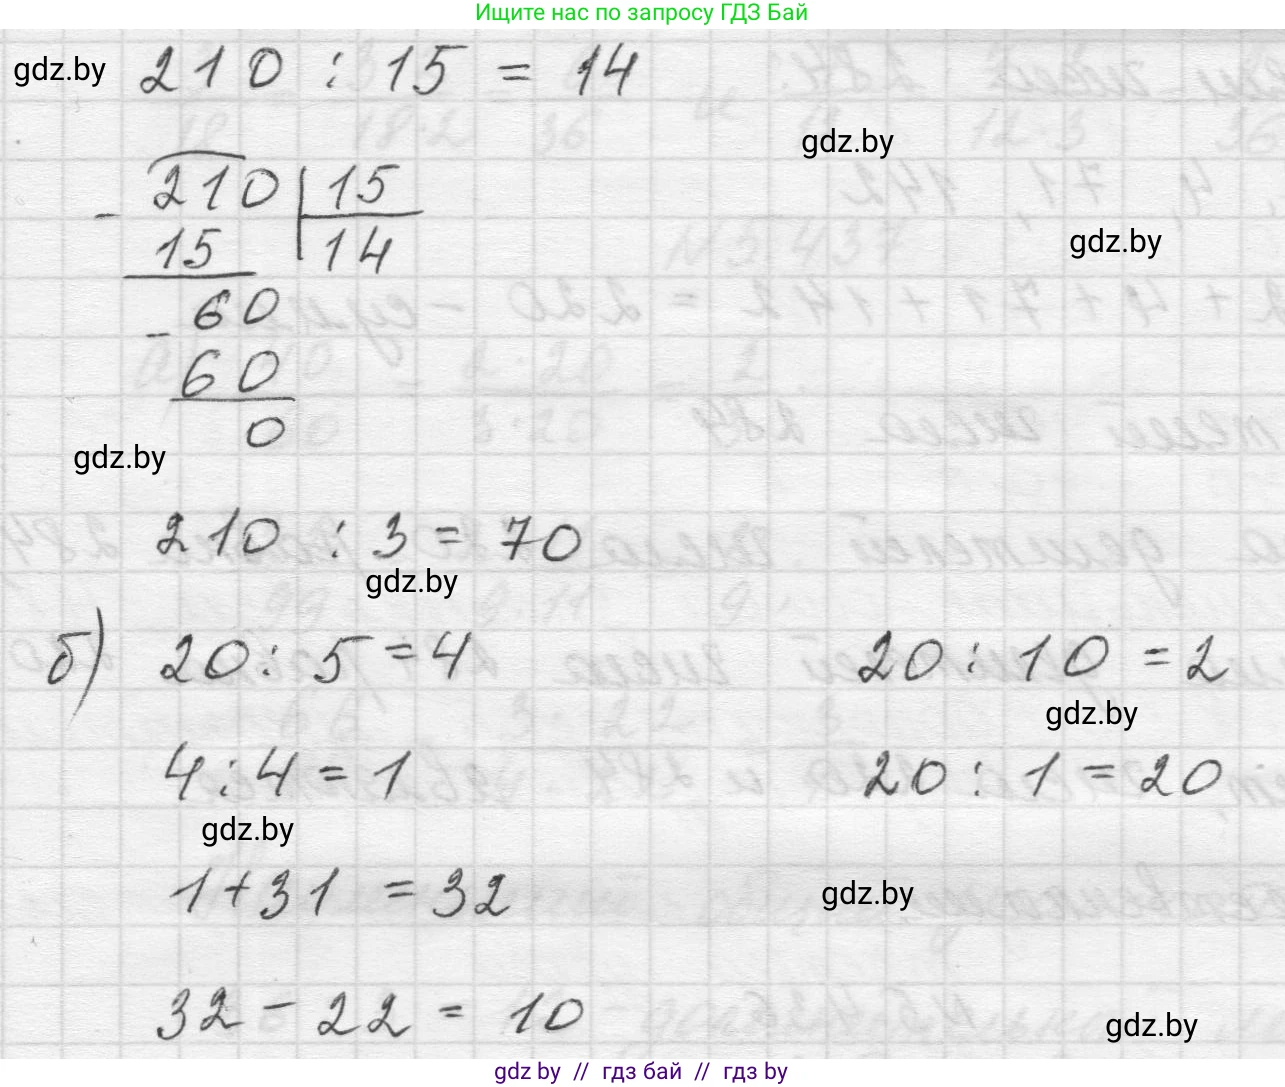 Ищите нас по запросу ГДЗ Бай
gdz.by 210 : 15 = 14
gdz.by
- 210 | 15
15 | 14
gdz.by
- 60
60
0
gdz.by
210 : 3 = 70
gdz.by
б) 20 : 5 = 4 20 : 10 = 2
gdz.by
4 : 4 = 1 20 : 1 = 20
gdz.by
1 + 31 = 32
gdz.by
32 - 22 = 10
gdz.by
gdz by // гдз бай // гдз by